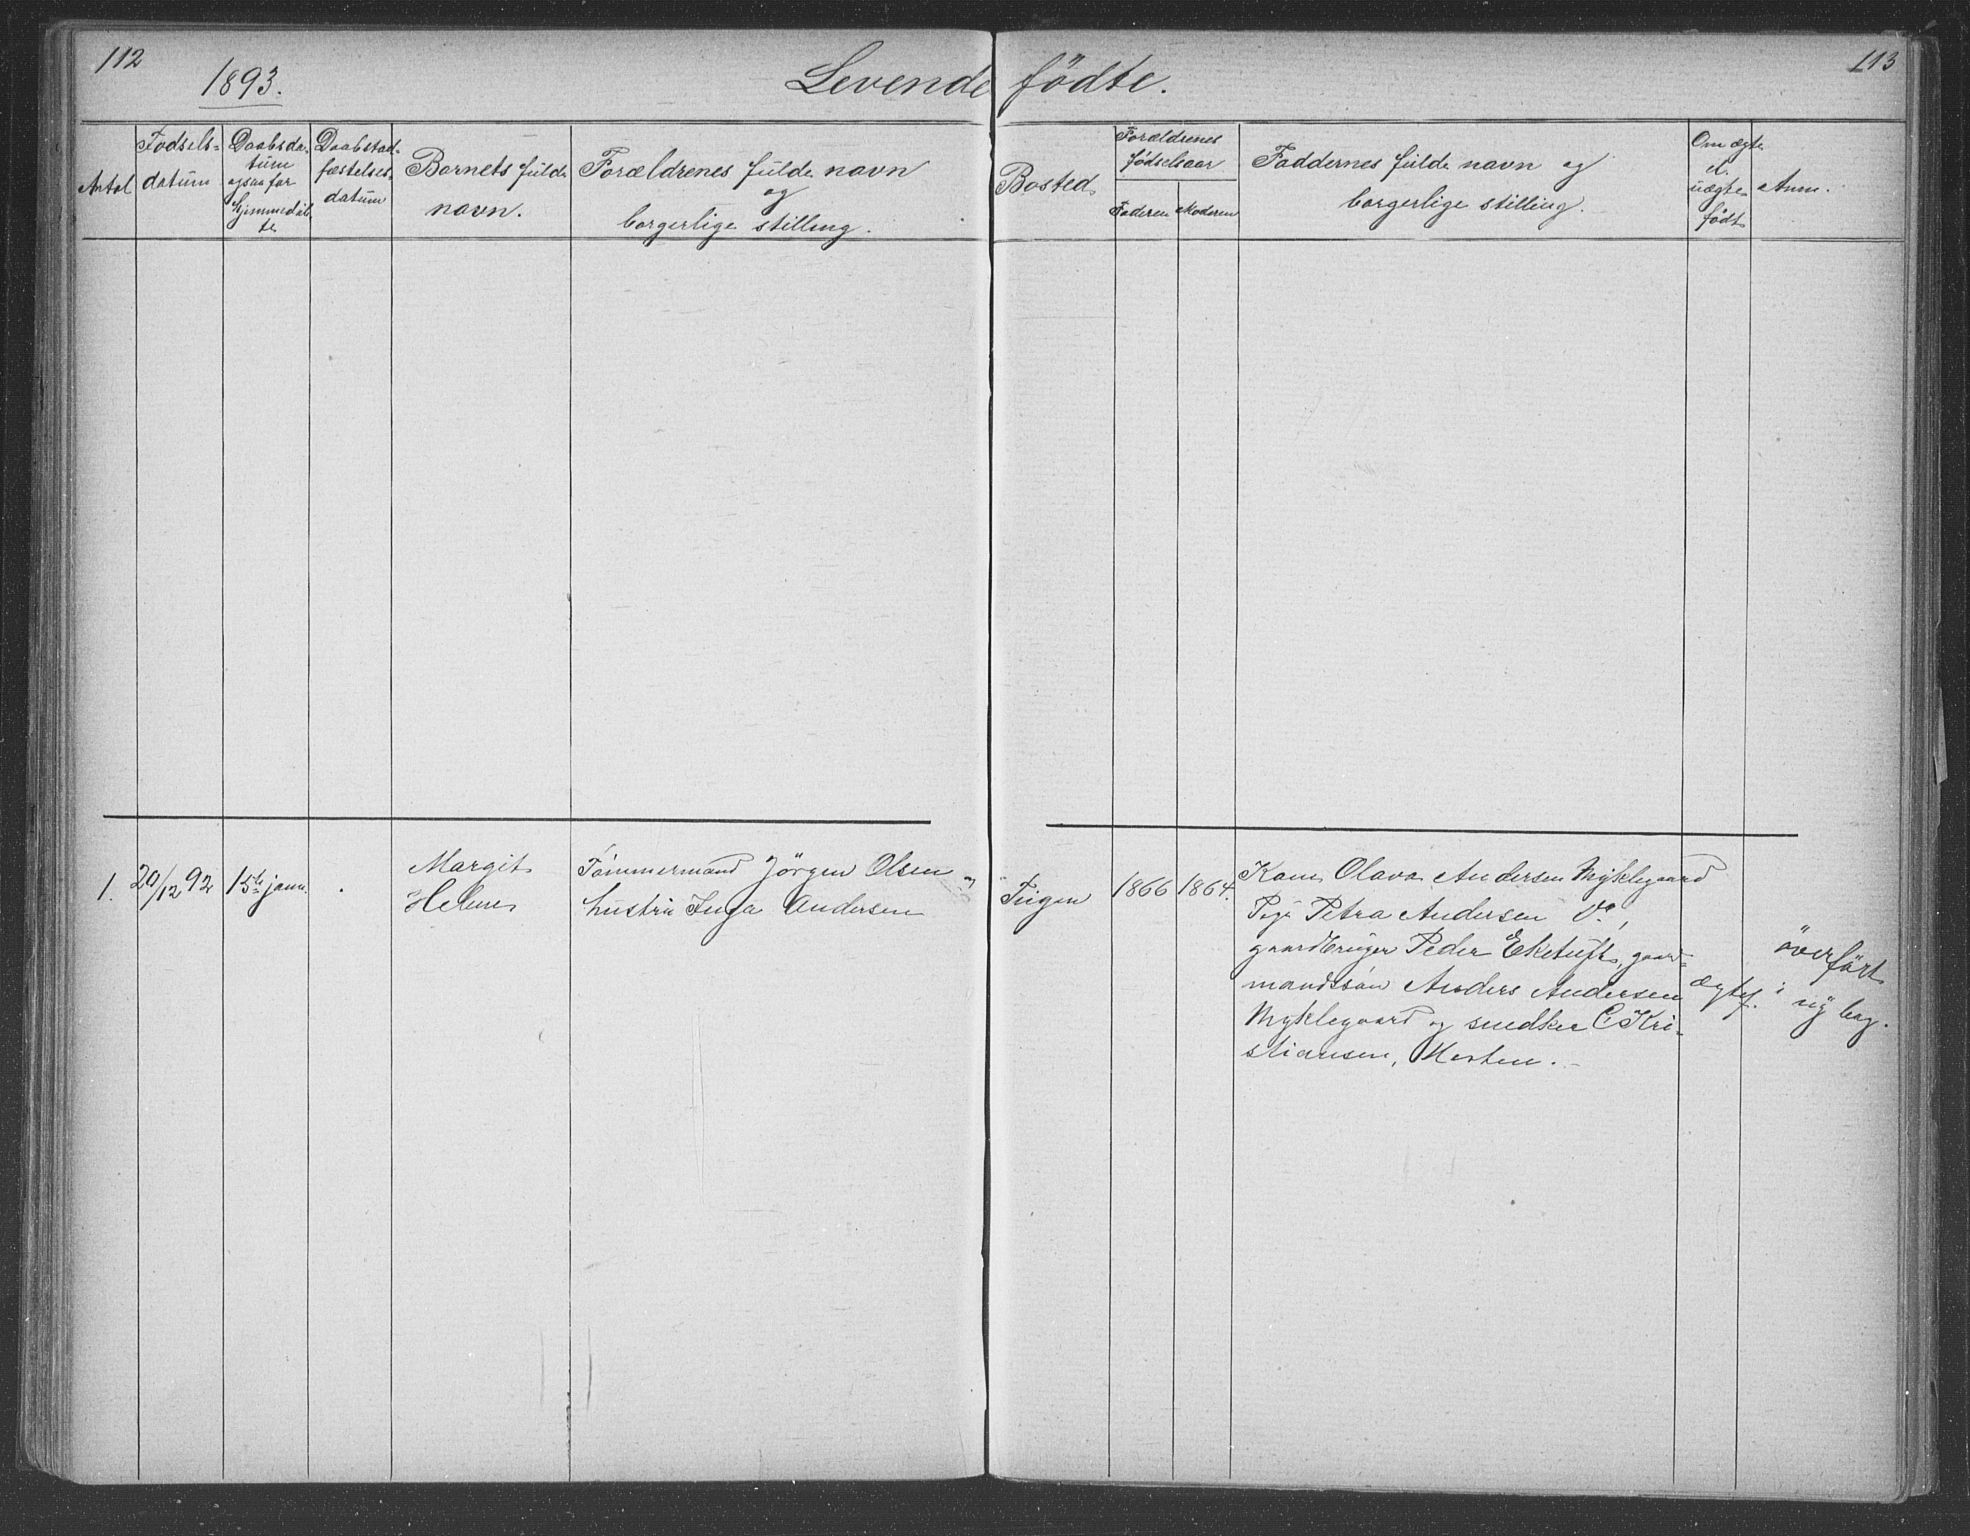 112
113
1893.
Levende födte.
Antal
Fødsels-
datum
Daabsda-
tum
ogsaa for
hjemmedøb-
te
Daabstad-
fæstelses-
datum
Barnets fulde
navn.
Forældrenes fulde navn
og
borgerlige stilling.
Bosted
Forældrenes
fødselsaar
Faderen Moderen
Faddernes fulde navn og
borgerlige stilling.
Om ægte
el.
uægte
født
Anm.
1.
20/12 92
15de janu.
Margit
Helene
Tømmermand Jörgen Olsen og
hustru Inga Andersen
Teigen
1866
1864.
Kone Olava Andersen Myklegaard
Pige Petra Andersen do,
gaardbruger Peder Eketuft, gaard-
mandssøn Anders Andersen
Myklegaard og snedker C. Kri-
stiansen, Horten.
ægtef.
överfört
i ny bog.